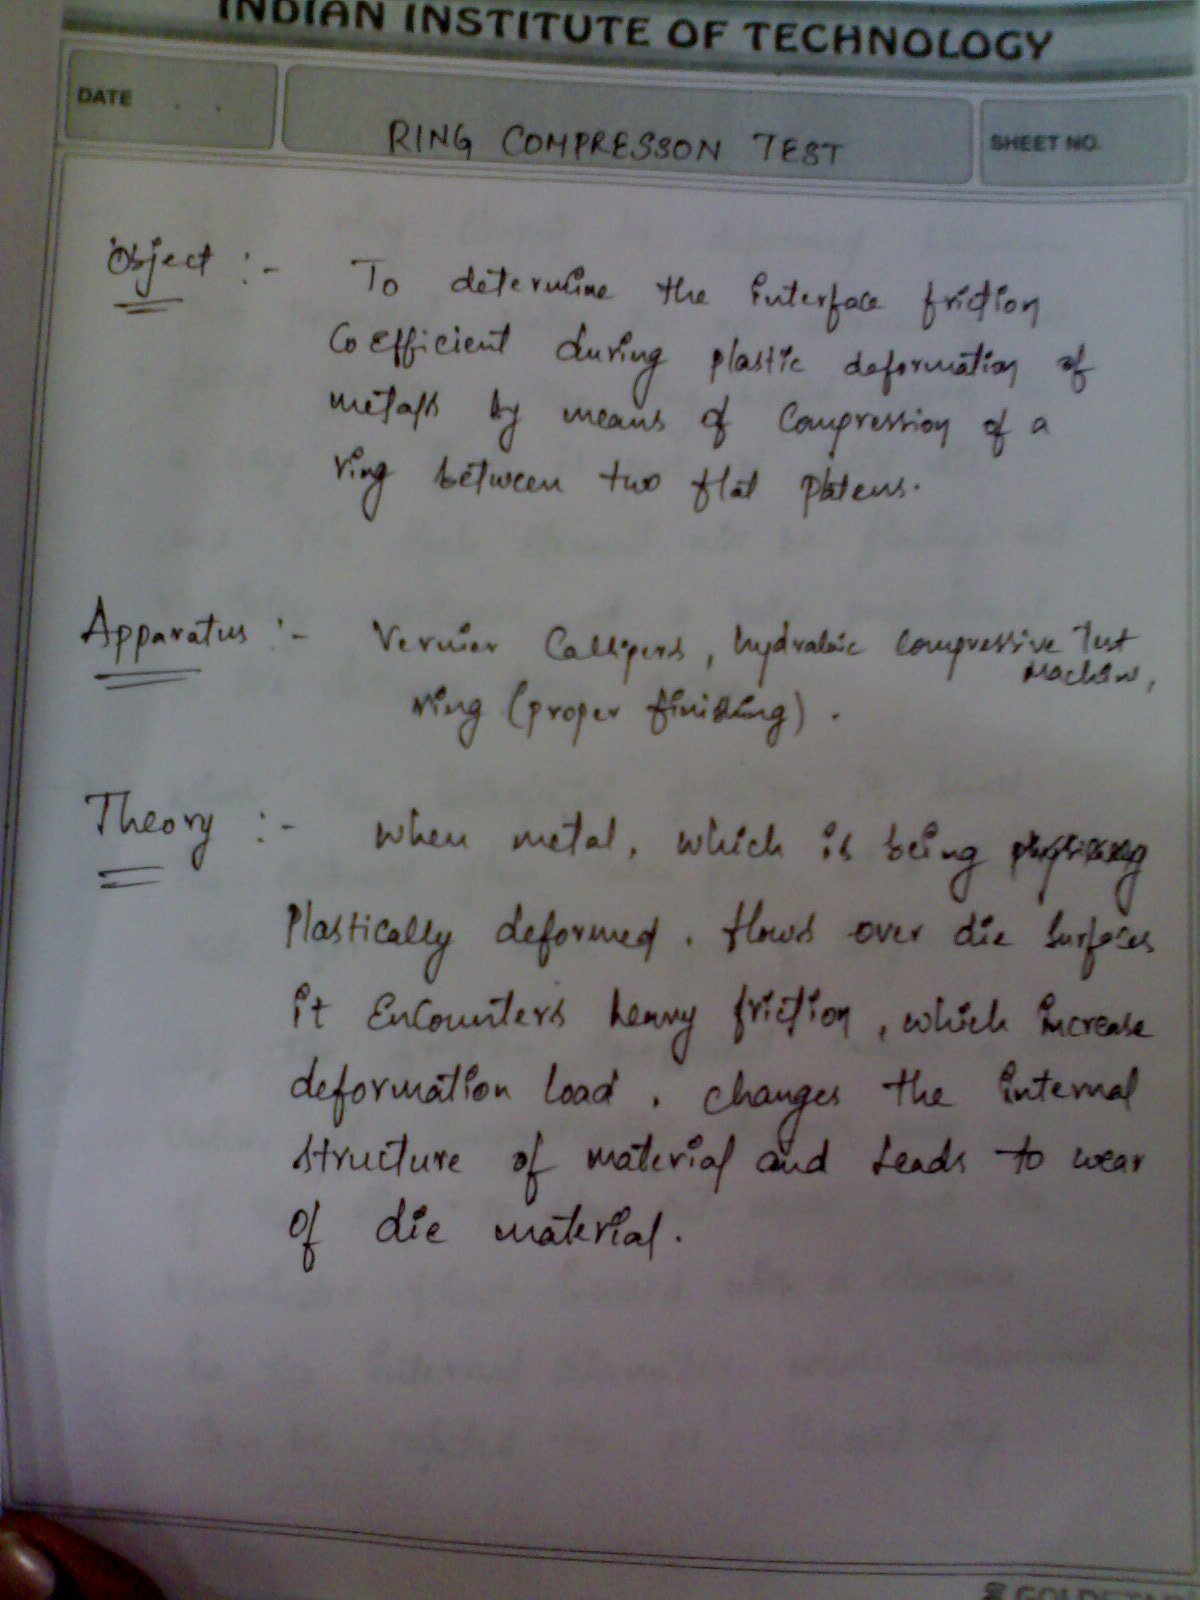 INDIAN INSTITUTE OF TECHNOLOGY
DATE
RING COMPRESSON TEST
SHEET NO.
Object :- To determine the interface friction
Coefficient during plastic deformation of
metals by means of Compression of a
ring between two flat platens.
Apparatus :- Vernier Callipers, hydralic compressive Test
Machine,
ring (proper finishing).
Theory :- When metal, which is being
Plastically deformed, flows over die surfaces
it Encounters heavy friction, which increase
deformation load, changes the internal
structure of material and leads to wear
of die material.
GOLDSTAR